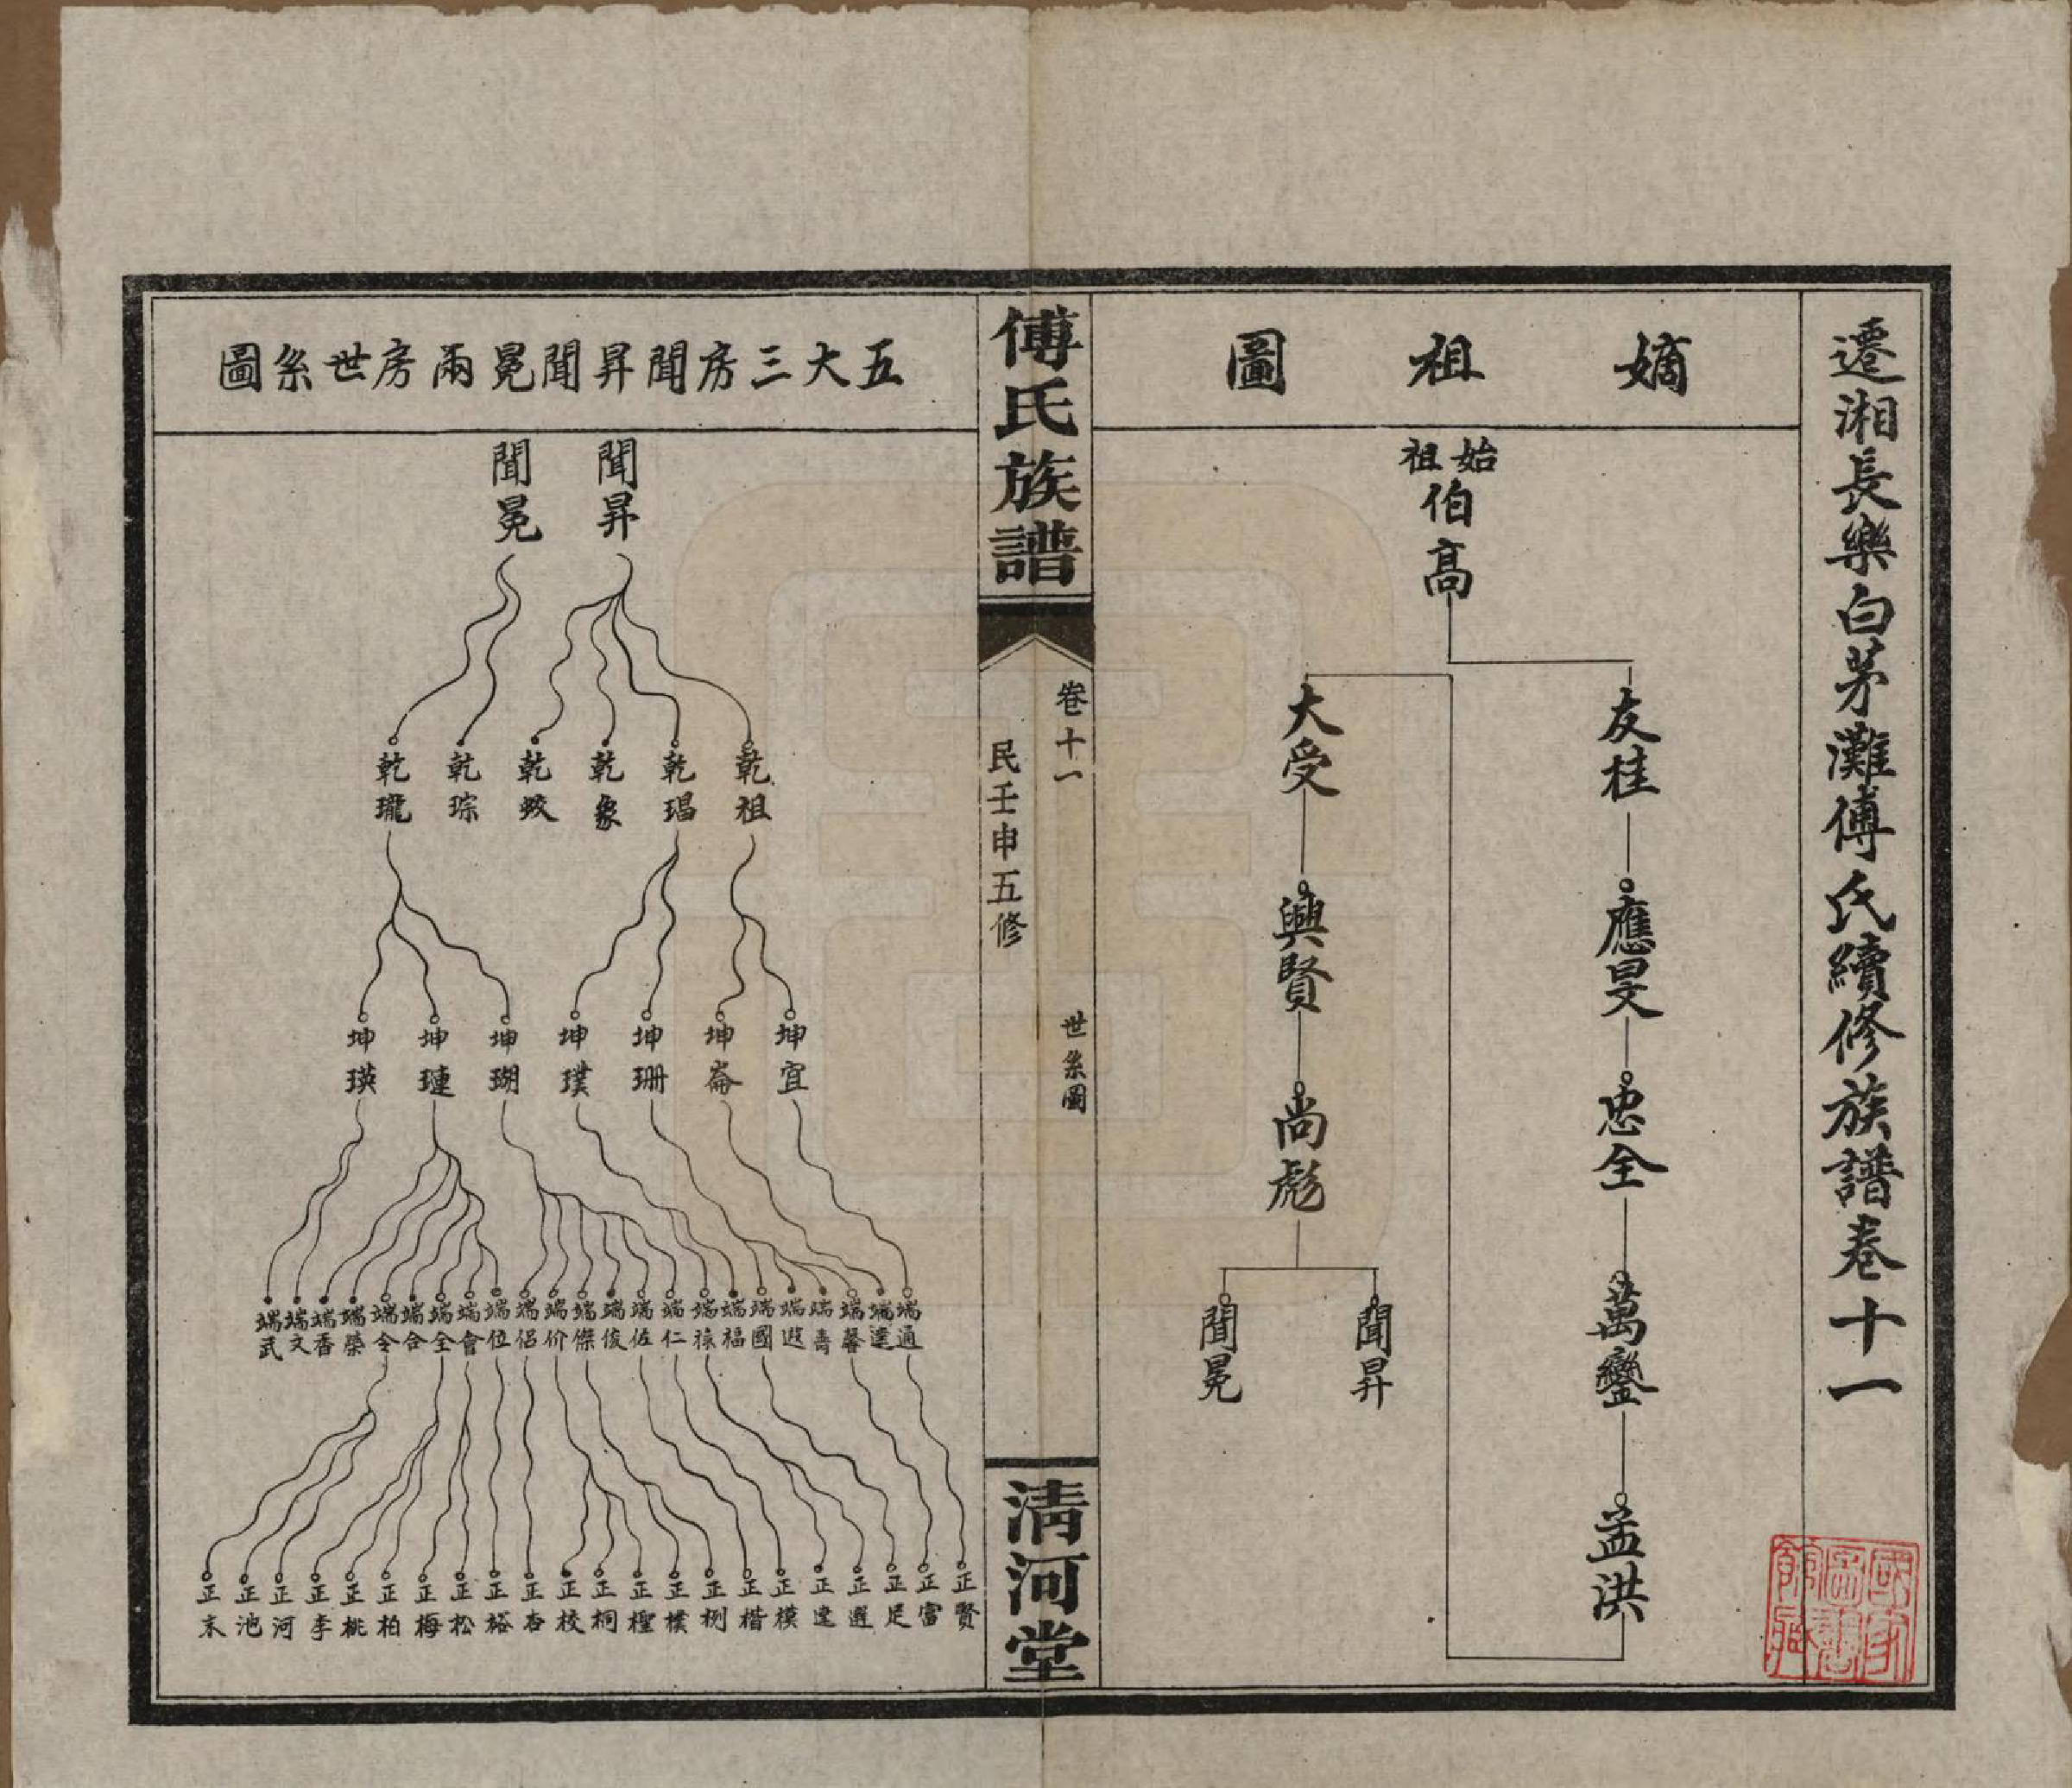 遷湘長樂白茅灘傅氏續修族譜卷十一
嫡祖圖
始祖伯高
友桂
應旻
忠全
萬鑾
孟洪
大受
興賢
尚彪
聞昇
聞冕
傅氏族譜
卷十一
世系圖
民壬申五修
清河堂
五大三房聞昇聞冕兩房世系圖
聞昇
聞冕
乾祖
乾琩
乾象
乾蛟
乾琮
乾瓏
坤宜
坤崙
坤珊
坤璞
坤瑚
坤璉
坤瑛
端通
端達
端馨
端壽
端遐
端國
端福
端祿
端仁
端佐
端俊
端傑
端价
端侶
端位
端會
端全
端合
端令
端榮
端香
端文
端武
正賢
正富
正足
正選
正達
正模
正楷
正栵
正樸
正檉
正桐
正校
正杏
正裕
正松
正梅
正柏
正桃
正李
正河
正池
正末
國家圖書館藏